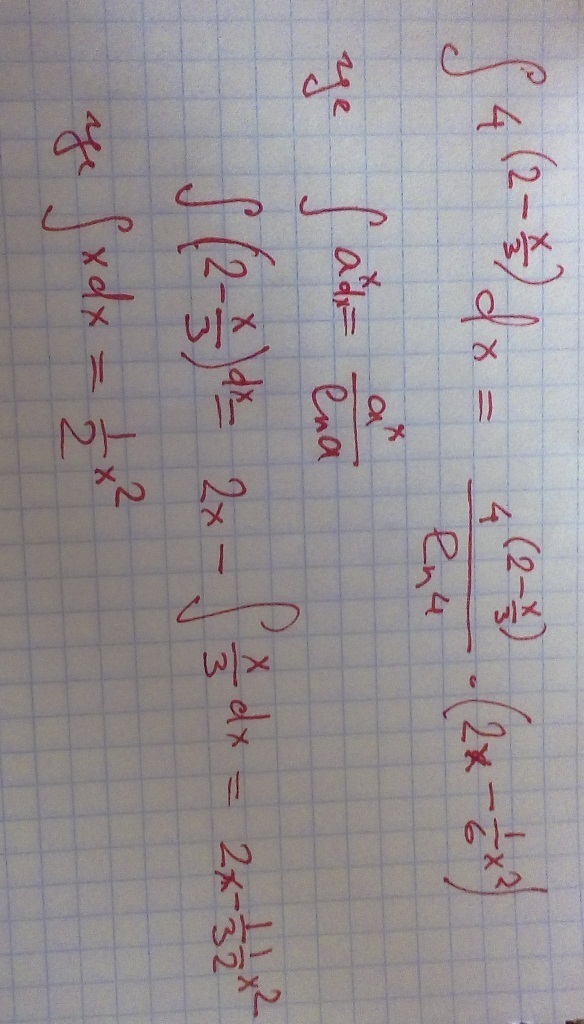 ∫ 4^(2 - x/3) dx = 4^(2 - x/3) / ln 4 · (2x - 1/6 x²)
∫ a^x dx = a^x / ln a
∫ (2 - x/3) dx = 2x - ∫ x/3 dx = 2x - 1/3 1/2 x²
∫ x dx = 1/2 x²